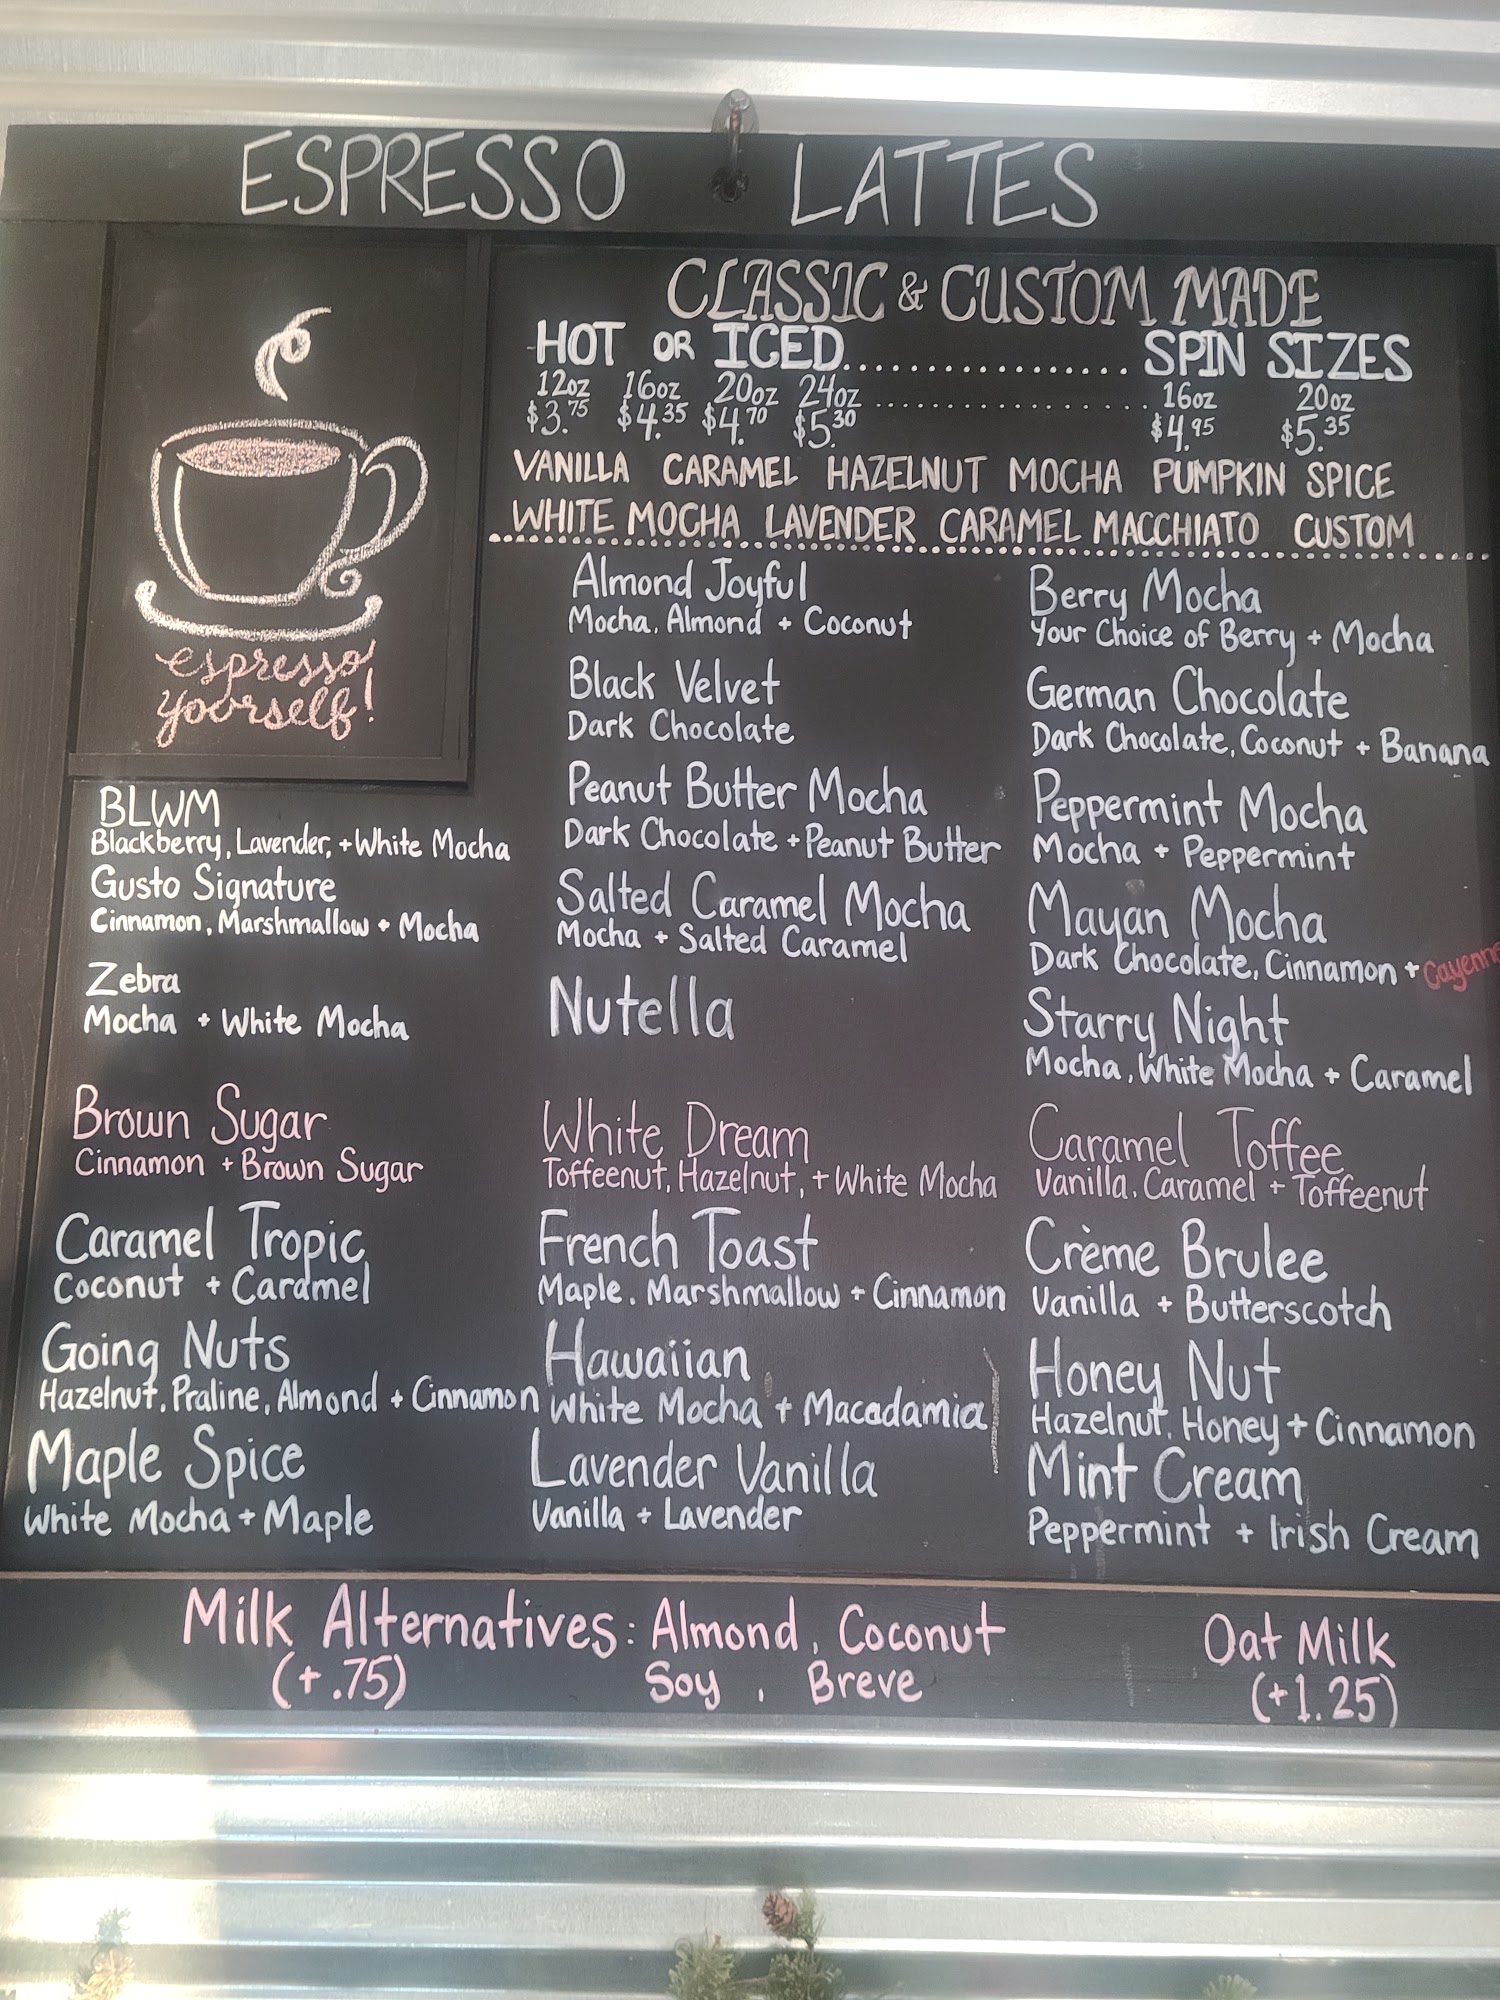 ESPRESSO LATTES
CLASSIC & CUSTOM MADE
HOT OR ICED................. SPIN SIZES
12oz 16oz 20oz 24oz ................. 16oz 20oz
$3.75 $4.35 $4.70 $5.30 $4.95 $5.35
VANILLA CARAMEL HAZELNUT MOCHA PUMPKIN SPICE
WHITE MOCHA LAVENDER CARAMEL MACCHIATO CUSTOM
espresso
yourself!
BLWM
Blackberry, Lavender, + White Mocha
Gusto Signature
Cinnamon, Marshmallow + Mocha
Zebra
Mocha + White Mocha
Brown Sugar
Cinnamon + Brown Sugar
Caramel Tropic
Coconut + Caramel
Going Nuts
Hazelnut, Praline, Almond + Cinnamon
Maple Spice
White Mocha + Maple
Almond Joyful
Mocha, Almond + Coconut
Black Velvet
Dark Chocolate
Peanut Butter Mocha
Dark Chocolate + Peanut Butter
Salted Caramel Mocha
Mocha + Salted Caramel
Nutella
White Dream
Toffeenut, Hazelnut, + White Mocha
French Toast
Maple, Marshmallow + Cinnamon
Hawaiian
White Mocha + Macadamia
Lavender Vanilla
Vanilla + Lavender
Berry Mocha
Your Choice of Berry + Mocha
German Chocolate
Dark Chocolate, Coconut + Banana
Peppermint Mocha
Mocha + Peppermint
Mayan Mocha
Dark Chocolate, Cinnamon + Cayenne
Starry Night
Mocha, White Mocha + Caramel
Caramel Toffee
Vanilla, Caramel + Toffeenut
Crème Brulee
Vanilla + Butterscotch
Honey Nut
Hazelnut, Honey + Cinnamon
Mint Cream
Peppermint + Irish Cream
Milk Alternatives: Almond, Coconut Oat Milk
(+.75) Soy, Breve (+1.25)